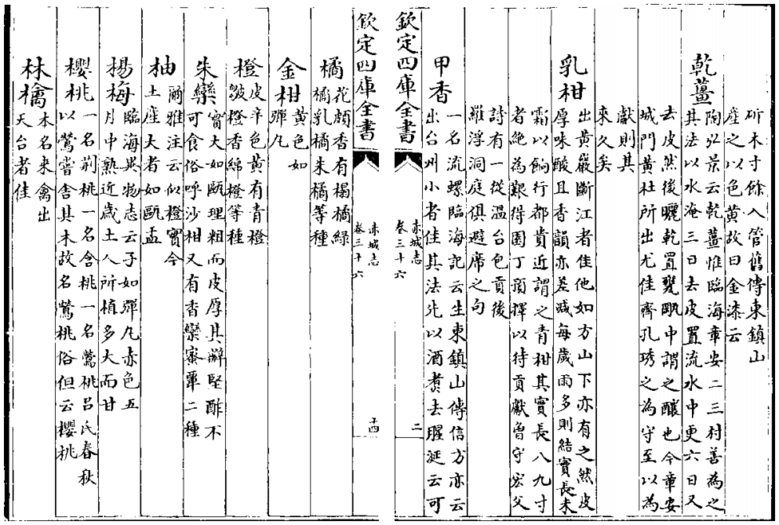 斫木寸餘入管舊傳東鎮山
產之以色黃故曰金漆云
乾薑
陶弘景云乾薑惟臨海章安二三村善為之
其法以水淹三日去皮置流水中更六日又
去皮然後曬乾置甕瓨中謂之釀也今章安
城門黃杜所出尤佳齊孔琇之為守至以為
獻則其
來久矣
乳柑
出黃巖斷江者佳他如方山下亦有之然皮
厚味酸且香韻亦差減每歲雨多則結實長未
霜以餉行都貴近謂之青柑其實長八九寸
者絕為艱得園丁頂擇以待貢獻魯守宏父
詩有一從溫台包貢後
羅浮洞庭俱避席之句
甲香
一名流螺臨海記云生東鎮山傳信方亦云
出台州小者佳其法先以酒煮去腥涎云可
欽定四庫全書
赤城志
卷三十六
二
欽定四庫全書
赤城志
卷三十六
十四
橘
花頗香有榻橘綠
橘乳橘朱橘等種
金柑
黃色如
彈丸
橙
皮辛色黃有青橙
皺橙香綿橙等種
朱欒
實大如甌理粗而皮厚其瓣堅酢不
可食俗呼沙柑又有香欒蜜蕈二種
柚
爾雅注云似橙實今
土產大者如甌盂
楊梅
臨海異物志云子如彈丸赤色五
月中熟近歲土人所植多大而甘
櫻桃
一名荊桃一名含桃一名鶯桃呂氏春秋
以鶯嘗含其木故名鶯桃俗但云櫻桃
林檎
本名來禽出
天台者佳